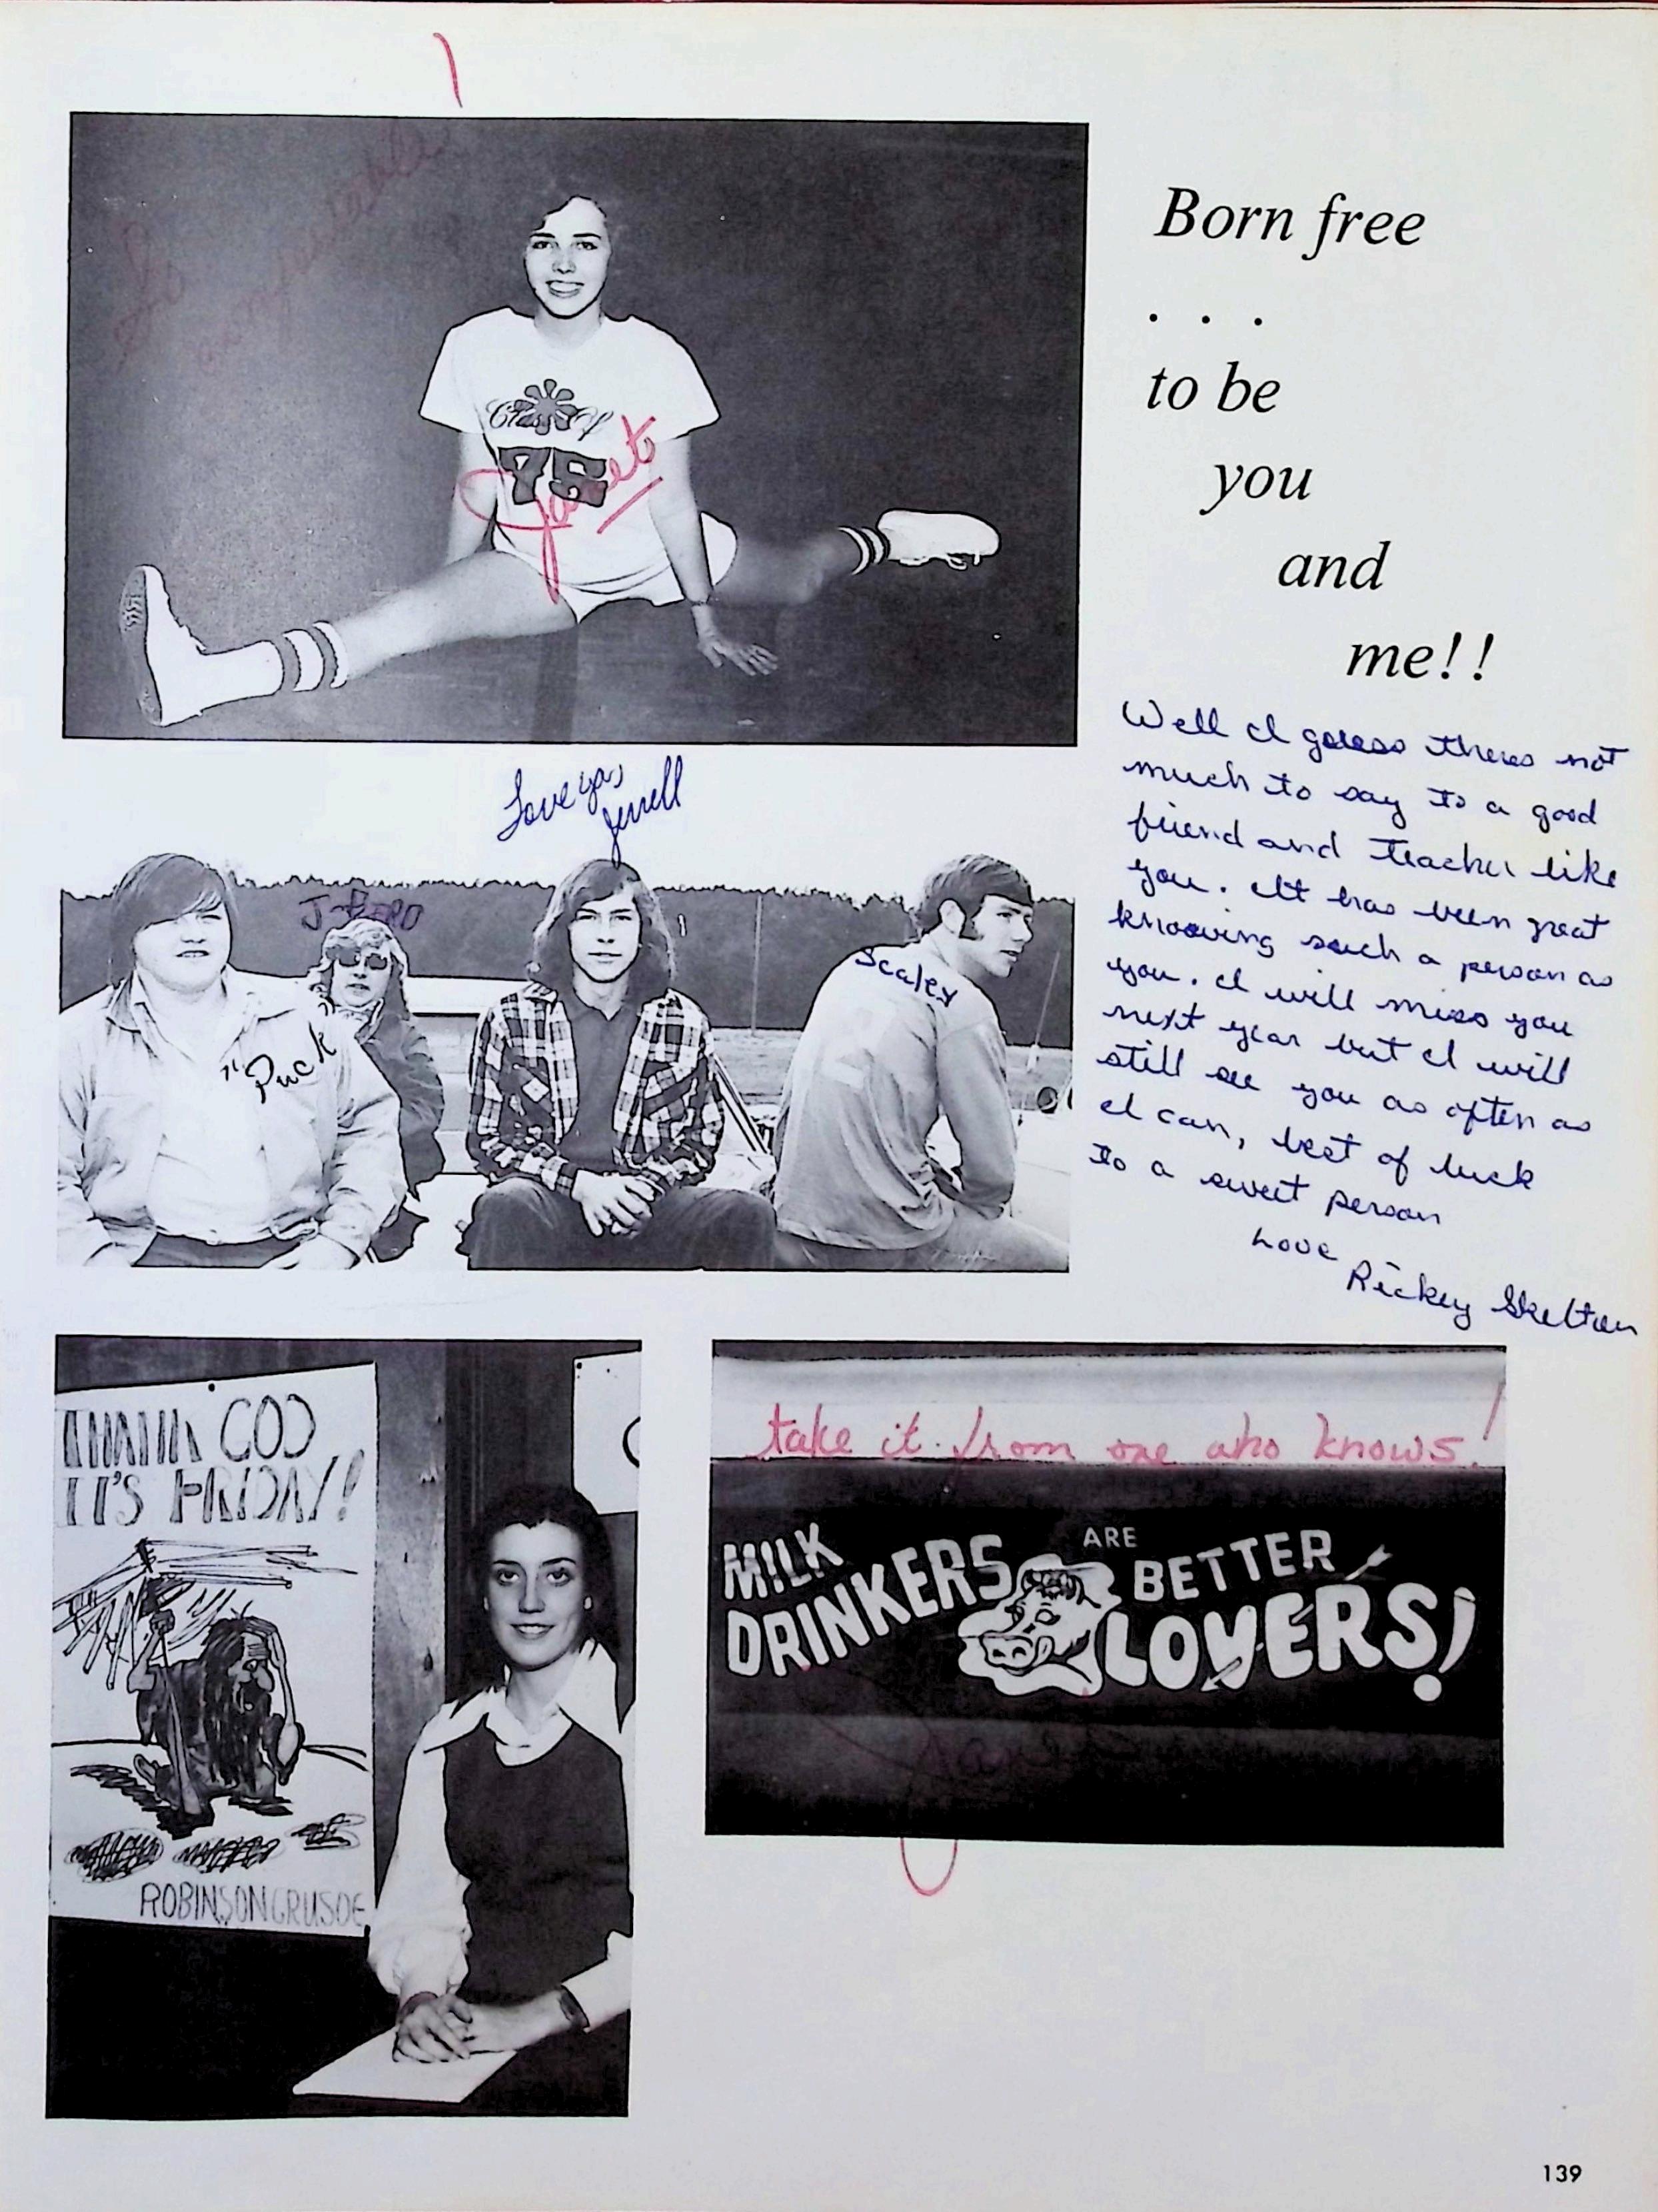 Born free
. . .
to be
you
and
me!!
Class Of
75
Janet
Love ya,
Jerrell
J-BIRD
"Puck
Scaley
Well I guess theres not
much to say to a good
friend and teacher like
you. It has been great
knowing such a person as
you. I will miss you
next year but I will
still see you as often as
I can, best of luck
to a sweet person
Love
Rickey Skelton
THANK GOD
IT'S FRIDAY!
ROBINSON CRUSOE
take it from one who knows!
MILK
DRINKERS
ARE
BETTER
LOVERS!
139